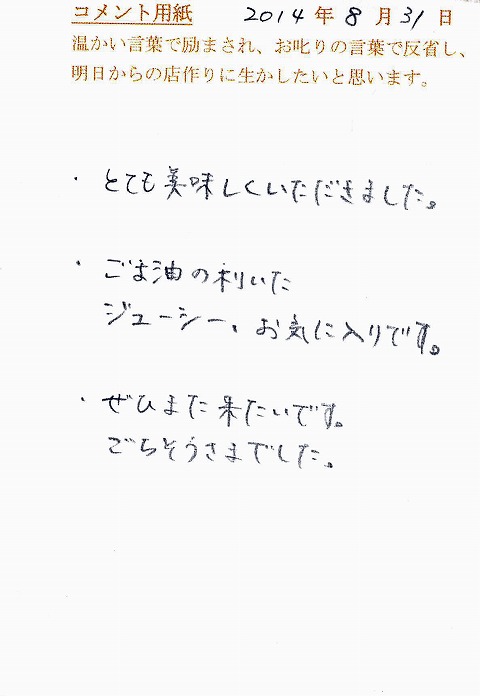 コメント用紙 2014年8月31日
温かい言葉で励まされ、お叱りの言葉で反省し、
明日からの店作りに生かしたいと思います。
・とても美味しくいただきました。
・ごま油の利いた
ジューシー、お気に入りです。
・ぜひまた来たいです。
ごちそうさまでした。